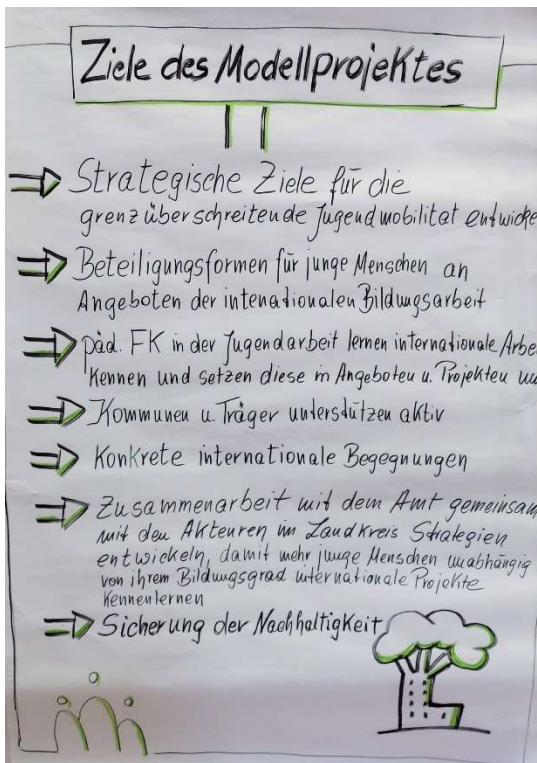 Ziele des Modellprojektes
Strategische Ziele für die
grenzüberschreitende Jugendmobilität entwicke
Beteiligungsformen für junge Menschen an
Angeboten der intenationalen Bildungsarbeit
päd. FK in der Jugendarbeit lernen internationale Arbe
kennen und setzen diese in Angeboten u. Projekten um
Kommunen u. Träger unterstützen aktiv
Konkrete internationale Begegnungen
Zusammenarbeit mit dem Amt gemeinsam
mit den Akteuren im Landkreis Strategien
entwickeln, damit mehr junge Menschen unabhängig
von ihrem Bildungsgrad internationale Projekte
kennenlernen
Sicherung der Nachhaltigkeit